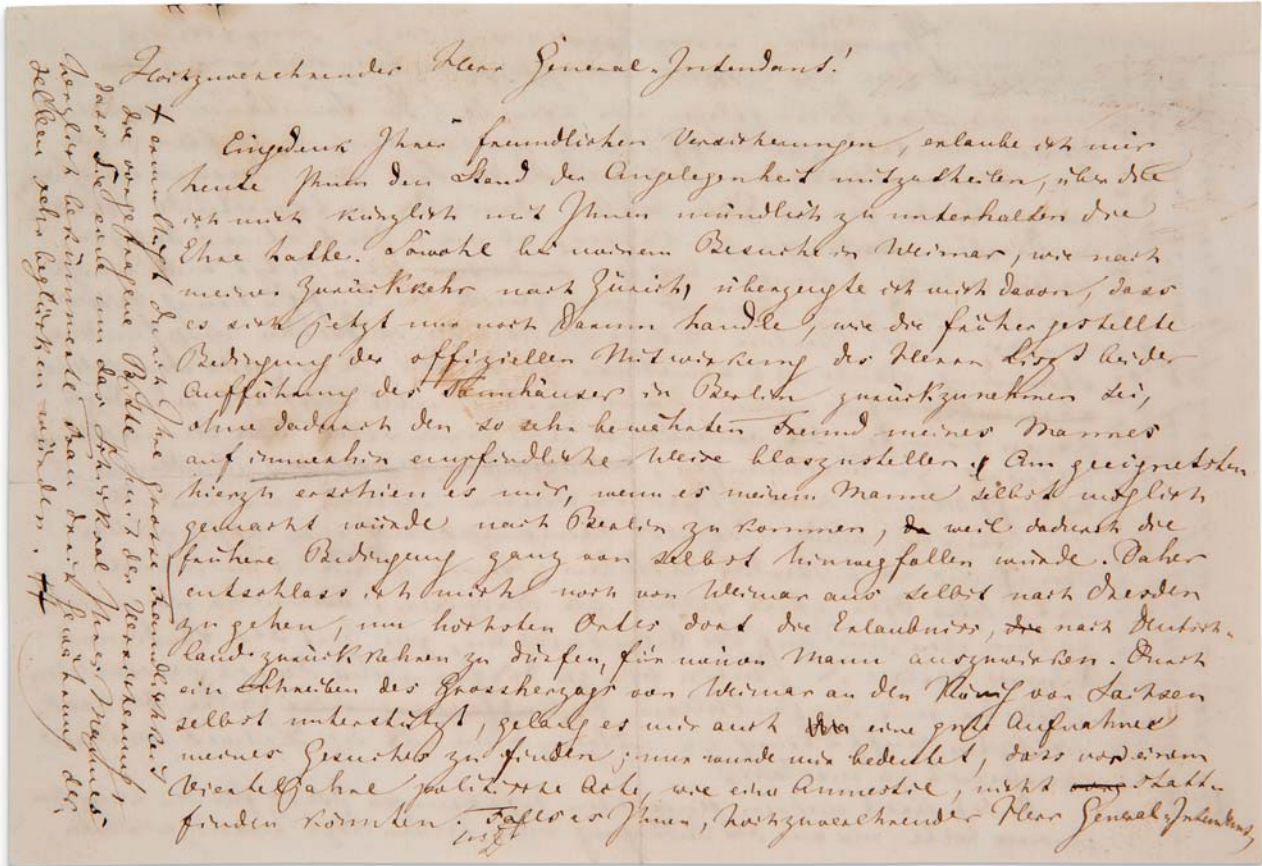 Hochzuverehrender Herr General-Intendant!
Eingedenk Ihrer freundlichen Versicherungen, erlaube ich mir
heute Ihnen den Stand der Angelegenheit mitzutheilen, über die
ich mich kürzlich mit Ihnen mündlich zu unterhalten die
Ehre hatte. Sowohl bei meinem Besuche in Weimar, wie nach
meiner Zurückkehr nach Zürich, überzeugte ich mich davon, dass
es sich jetzt nur noch darum handle, wie die früher gestellte
Bedingung der offiziellen Mitwirkung des Herrn Liszt bei der
Aufführung des Tannhäuser in Berlin zurückzunehmen sei,
ohne dadurch den so sehr bewährten Freund meines Mannes
auf immerhin empfindliche Weise bloszustellen. Am geeignetsten
hierzu erschien es mir, wenn es meinem Manne selbst möglich
gemacht würde nach Berlin zu kommen, da weil dadurch die
frühere Bedingung ganz von selbst hinwegfallen würde. Daher
entschloss ich mich noch von Weimar aus selbst nach Dresden
zu gehen, um höchsten Ortes dort die Erlaubniss, die nach Deutsch-
land zurückkehren zu dürfen, für meinen Mann auszuwirken. Durch
ein Schreiben des Grossherzogs von Weimar an den König von Sachsen
selbst unterstützt, gelang es mir auch eine gute Aufnahme
meines Gesuches zu finden; nur wurde mir bedeutet, dass vor einem
Vierteljahre politische Acte, wie eine Amnestie, nicht statt-
finden könnten. Falls es Ihnen, hochzuverehrender Herr General-Intendant,
ermuthigt durch Ihre grosse Freundlichkeit
die vorgetragene Bitte, mit der Versicherung,
dass Sie eine um das Schicksal Ihres Mannes
herzlich bekümmerte Frau durch Gewährung der-
selben sehr beglücken würden.